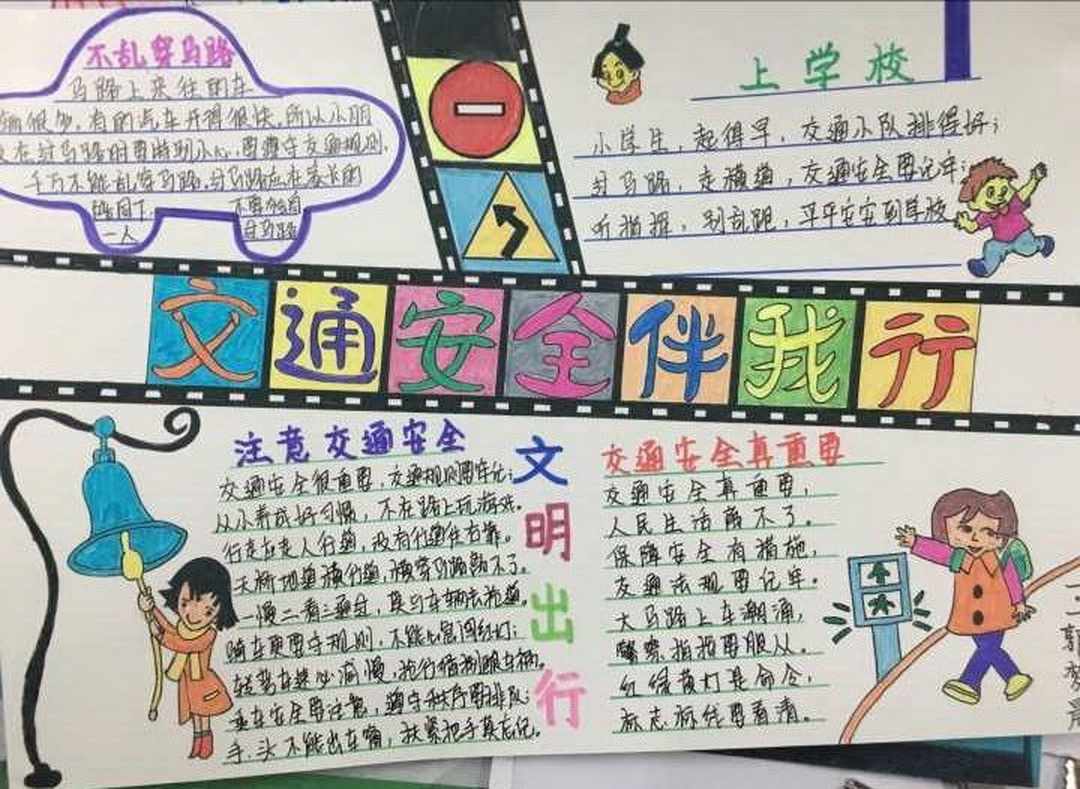 不乱穿马路
马路上来往的车
辆很多,有的汽车开得很快,所以小朋
友在过马路时要特别小心,要遵守交通规则,
千万不能乱穿马路,过马路应在家长的
陪同下,不要独自
一人过马路
上学校
小学生,起得早,交通小队排得好;
过马路,走横道,交通安全要记牢;
听指挥,别乱跑,平平安安到学校
交通安全伴我行
注意交通安全
交通安全很重要,交通规则要牢记;
从小养成好习惯,不在路上玩游戏。
行走应走人行道,没有行道往右靠。
天桥地道横行道,横穿马路离不了。
一慢二看三通过,莫与车辆去抢道。
骑车更要守规则,不能心急闯红灯;
转弯车速必减慢,
乘车安全要注意,遵守秩序要排队;
手、头不能出车窗,扶紧把手莫忘记。
文明出行
交通安全真重要
交通安全真重要,
人民生活离不了。
保障安全有措施,
交通法规要记牢。
大马路上车潮涌,
警察指挥要服从。
红绿黄灯是命令,
标志标线要看清。
一二郭